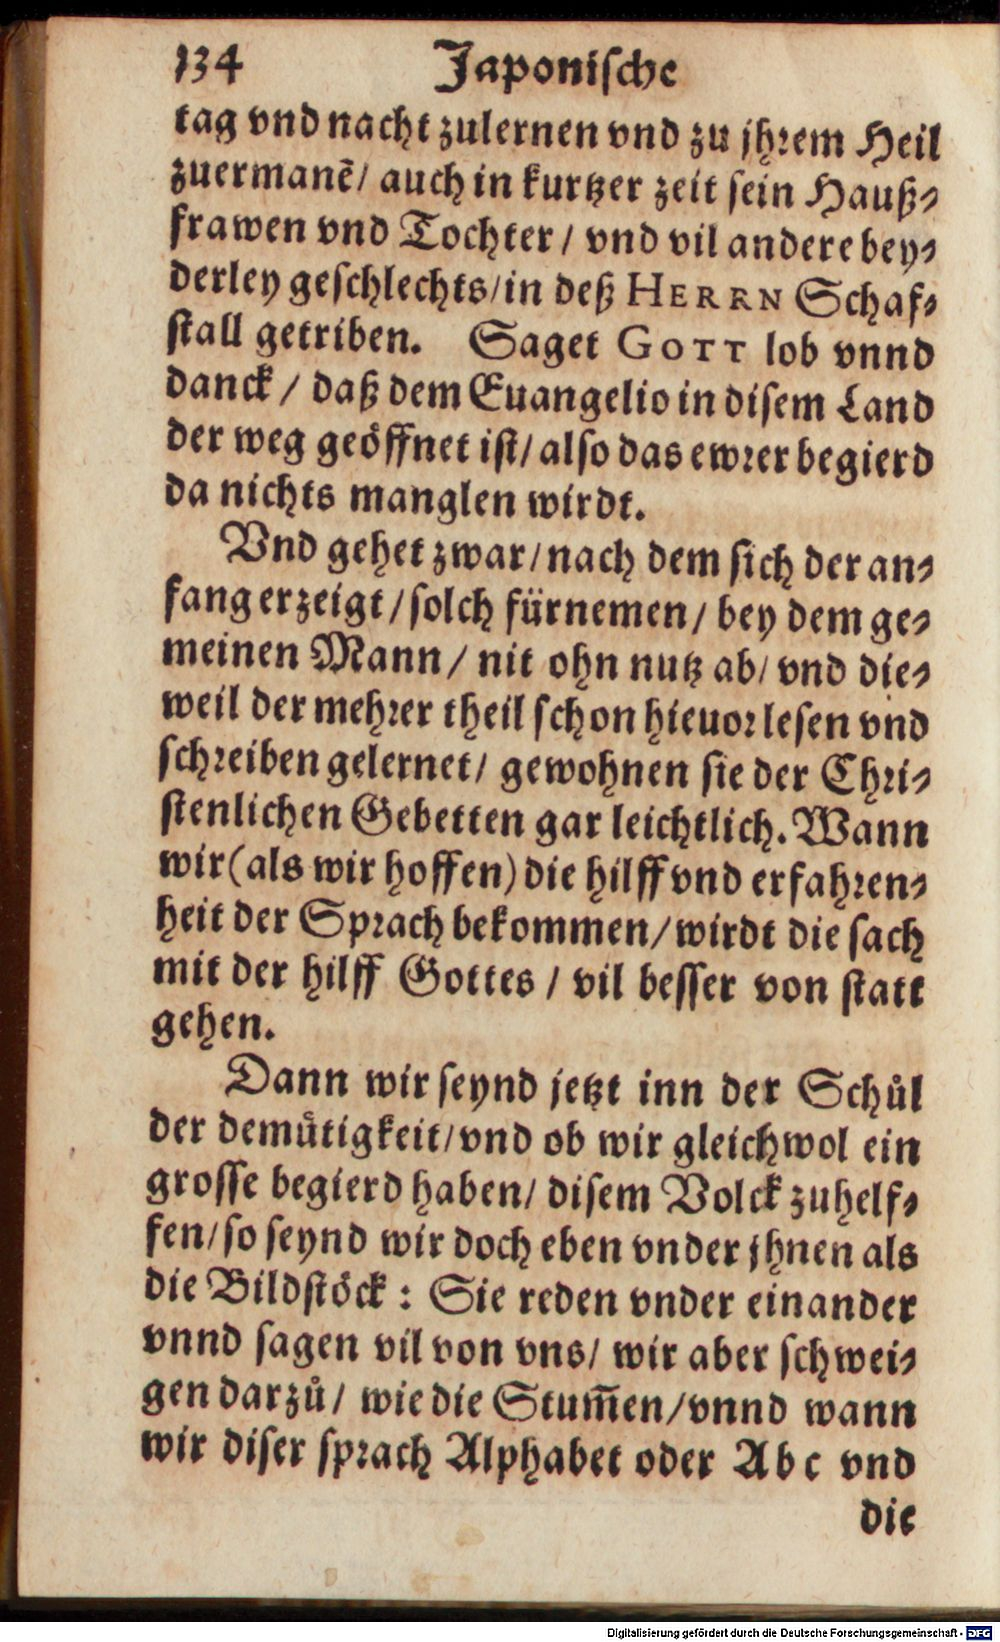 134 Japonische
tag vnd nacht zulernen vnd zu jhrem Heil
zuermanẽ/ auch in kurtzer zeit sein Hauß⸗
frawen vnd Tochter / vnd vil andere bey⸗
derley geschlechts/in deß HERRN Schaf⸗
stall getriben. Saget GOTT lob vnnd
danck / daß dem Euangelio in disem Land
der weg geöffnet ist/ also das ewrer begierd
da nichts manglen wirdt.
Vnd gehet zwar/nach dem sich der an⸗
fang erzeigt /solch fürnemen/ bey dem ge⸗
meinen Mann/ nit ohn nutz ab/ vnd die⸗
weil der mehrer theil schon hieuor lesen vnd
schreiben gelernet/ gewohnen sie der Chri⸗
stenlichen Gebetten gar leichtlich. Wann
wir (als wir hoffen) die hilff vnd erfahren⸗
heit der Sprach bekommen/ wirdt die sach
mit der hilff Gottes / vil besser von statt
gehen.
Dann wir seynd jetzt inn der Schůl
der demůtigkeit/vnd ob wir gleichwol ein
grosse begierd haben/ disem Volck zuhelf⸗
fen/so seynd wir doch eben vnder jhnen als
die Bildstöck : Sie reden vnder einander
vnnd sagen vil von vns/ wir aber schwei⸗
gen darzů/ wie die Stum̃en/vnnd wann
wir diser sprach Alphabet oder Abc vnd
die
Digitalisierung gefördert durch die Deutsche Forschungsgemeinschaft - DFG